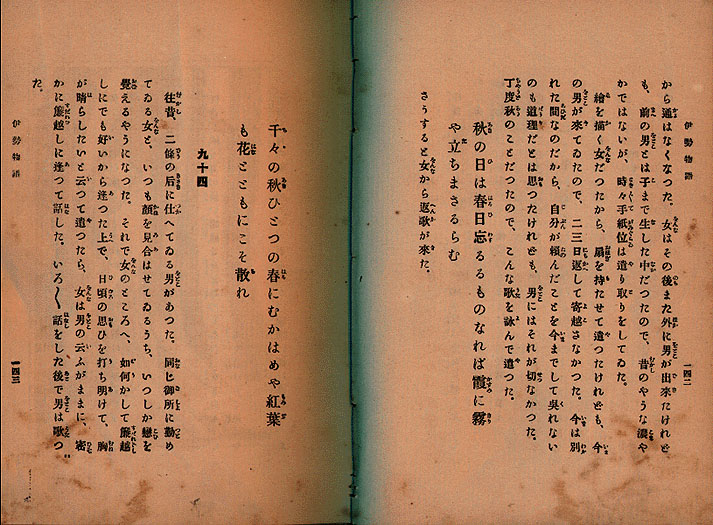 伊勢物語
一四二
から通はなくなつた。女はその後また外に男が出來たけれど
も、前の男とは子まで生した中だつたので、昔のやうな濃や
かではないが、時々手紙位は遣り取りをしてゐた。
繪を描く女だつたから、扇を持たせて遣つたけれども、今
の男が來てゐたので、二三日返して寄越さなかつた。今は別
れた間なのだから、自分が頼んだことを今までして呉れない
のも道理だとは思つたけれども、男にはそれが切なかつた。
丁度秋のことだつたので、こんな歌を詠んで遣つた。
秋の日は春日忘るるものなれば霞に霧
や立ちまさるらむ
さうすると女から返歌が來た。
千々の秋ひとつの春にむかはめや紅葉
も花とともにこそ散れ
九十四
往昔、二條の后に仕へてゐる男があつた。同じ御所に勤め
てゐる女と、いつも顔を見合はせてゐるうち、いつしか戀を
覺えるやうになつた。それで女のところへ、如何かして簾越
しにでも好いから逢つた上で、日頃の思ひを打ち明けて、胸
が晴らしたいと云つて遣つたら、女は男の云ふがままに、密
かに簾越しに逢つて話した。いろ〳〵話をした後で男は歌つ
た。
伊勢物語
一四三